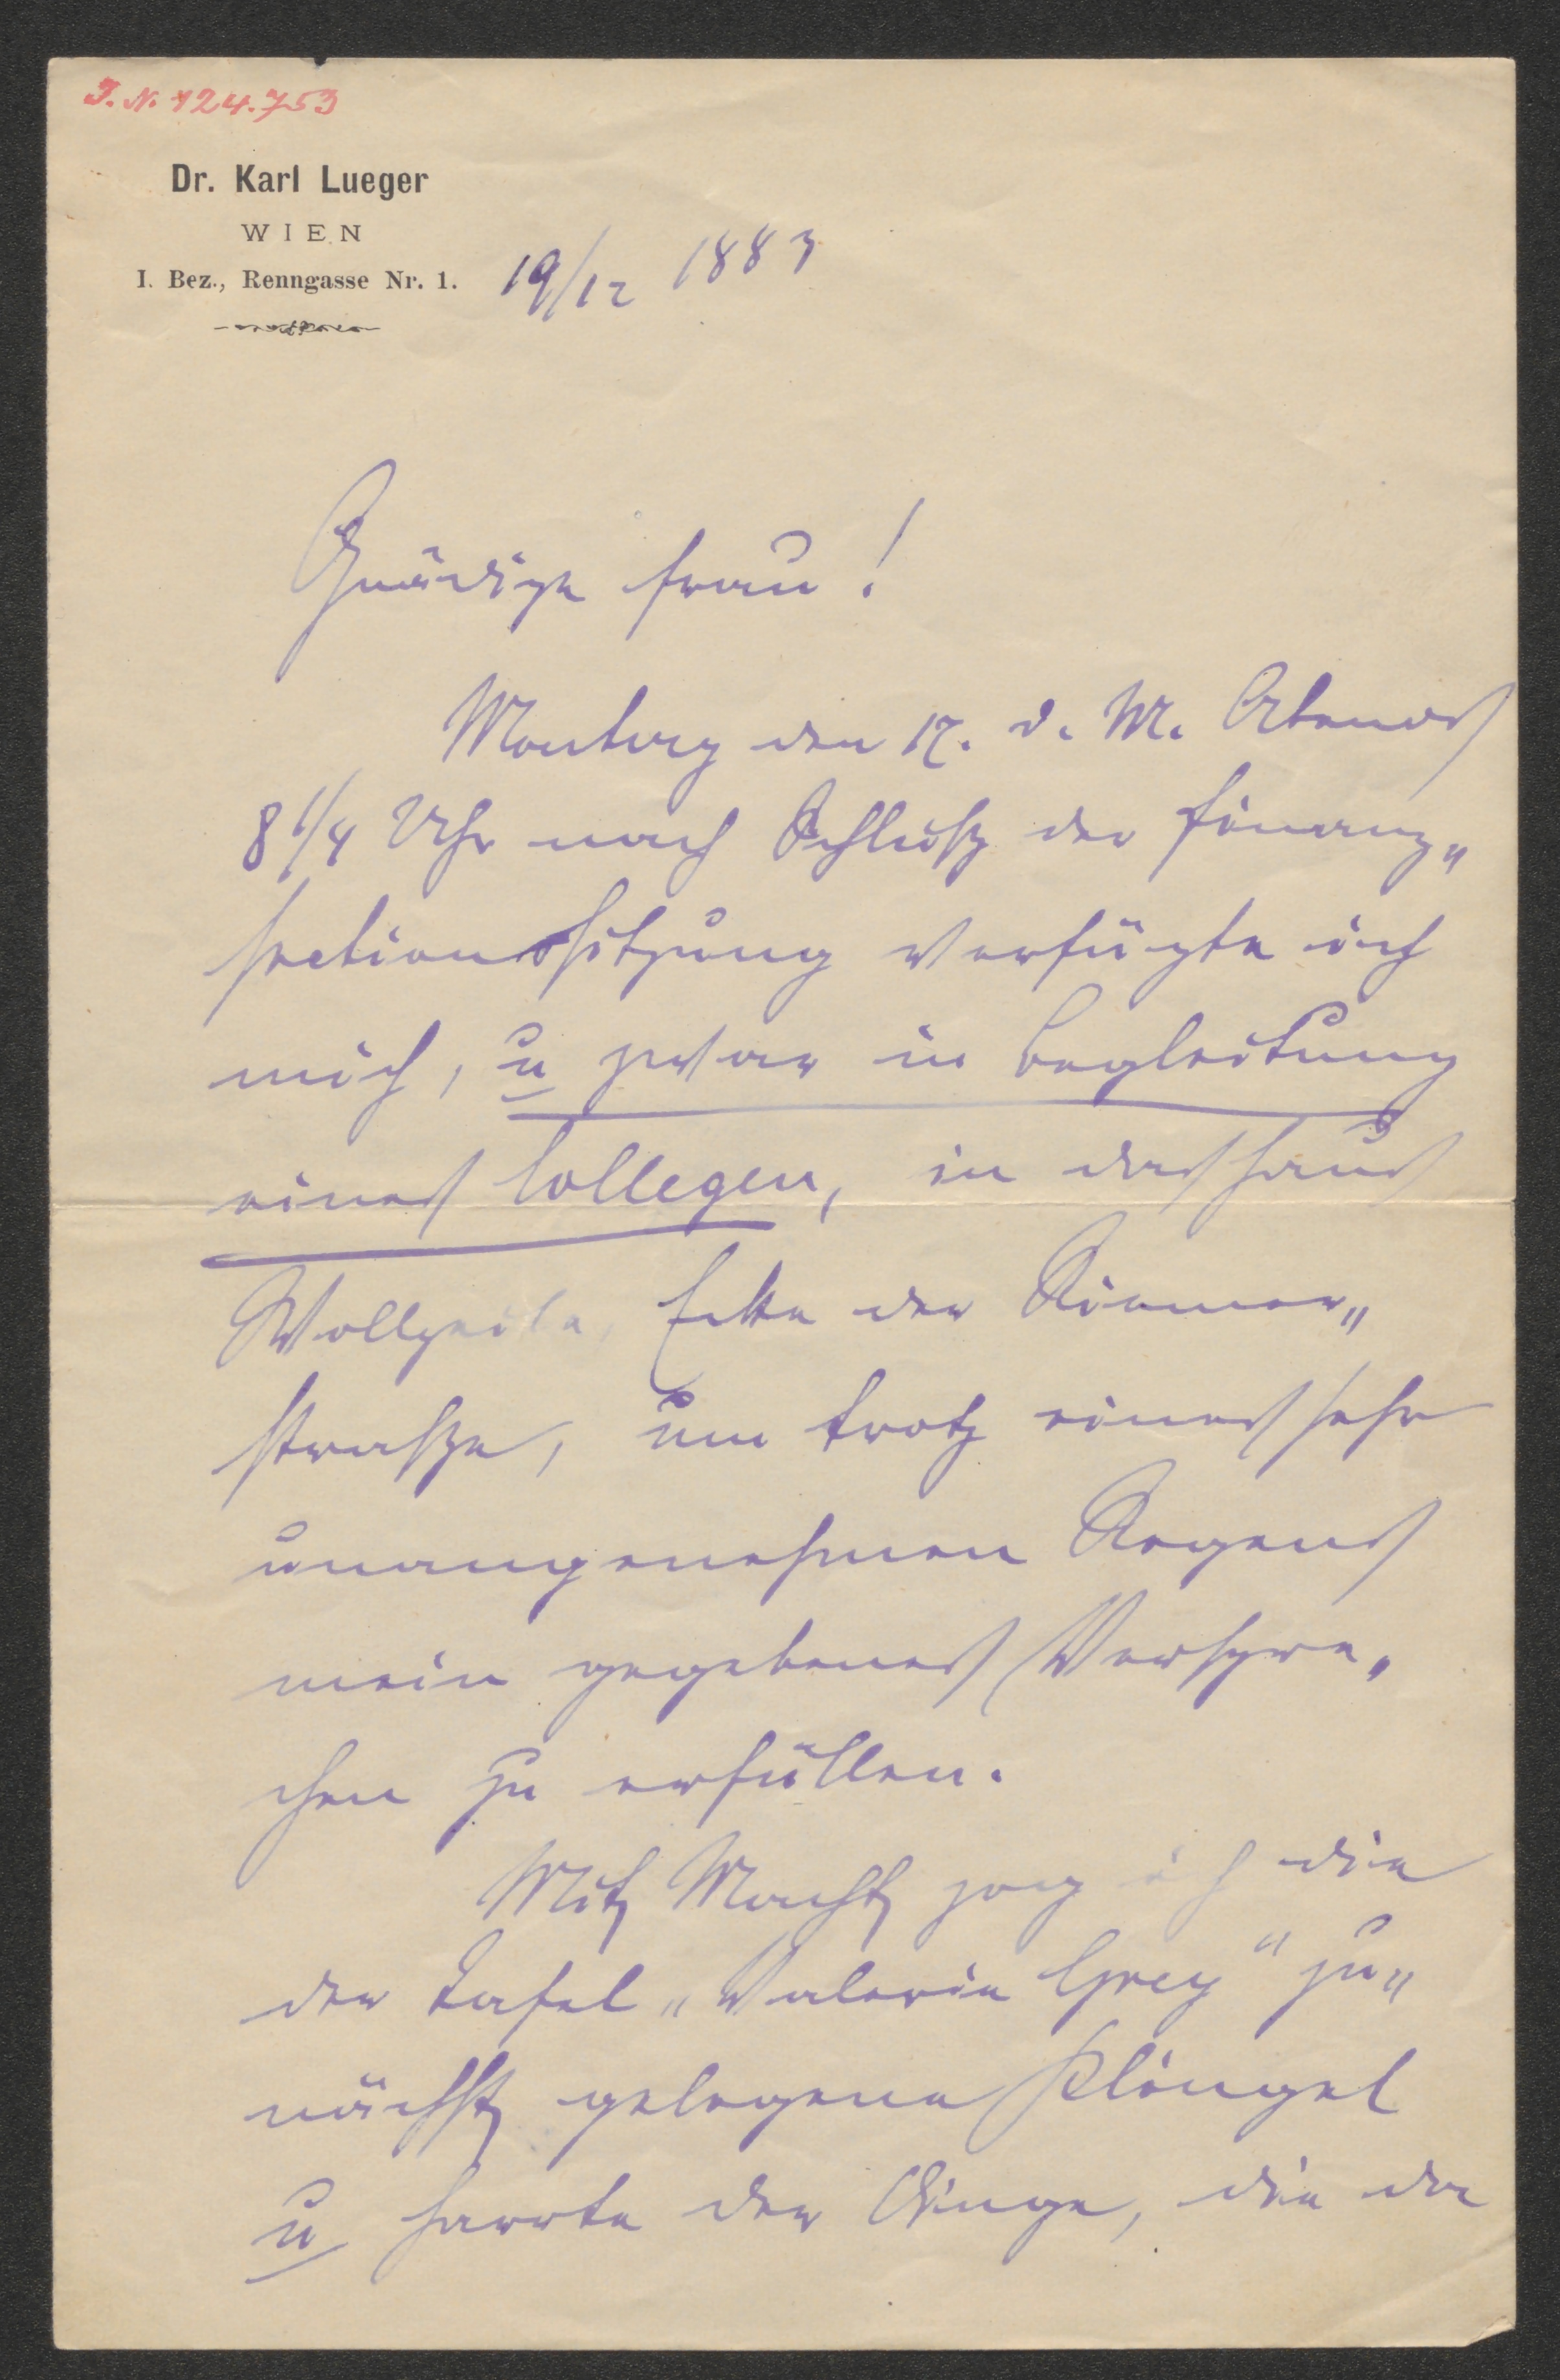 I. N. 124.753
Dr. Karl Lueger
WIEN
I. Bez., Renngasse Nr. 1.
19/12 1883
Gnädige Frau!
Montag den 17. d. M. Abends
8 1/4 Uhr nach Schlusz der Finanz„
sectionssitzung verfügte ich
mich, u zwar in Begleitung
eines Collegen, in das Haus
Wollzeile, Ecke der Riemer„
strasze, um trotz eines sehr
unangenehmen Regens
mein gegebenes Verspre„
chen zu erfüllen.
Mit Macht zog ich die
der Tafel „Valerie Grey“ zu„
nächst gelegene Klingel
u harrte der Dinge, die da